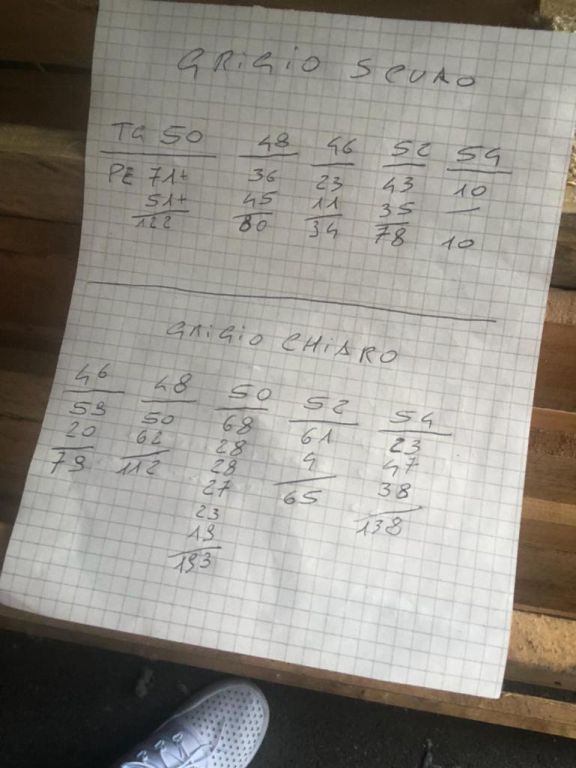 GRIGIO SCURO
TG 50 48 46 52 54
PE 71+ 36 23 43 10
51+ 45 11 35 —
122 80 34 78 10
GRIGIO CHIARO
46 48 50 52 54
59 50 68 61 23
20 62 28 4 47
79 112 28 65 38
27 138
23
19
193